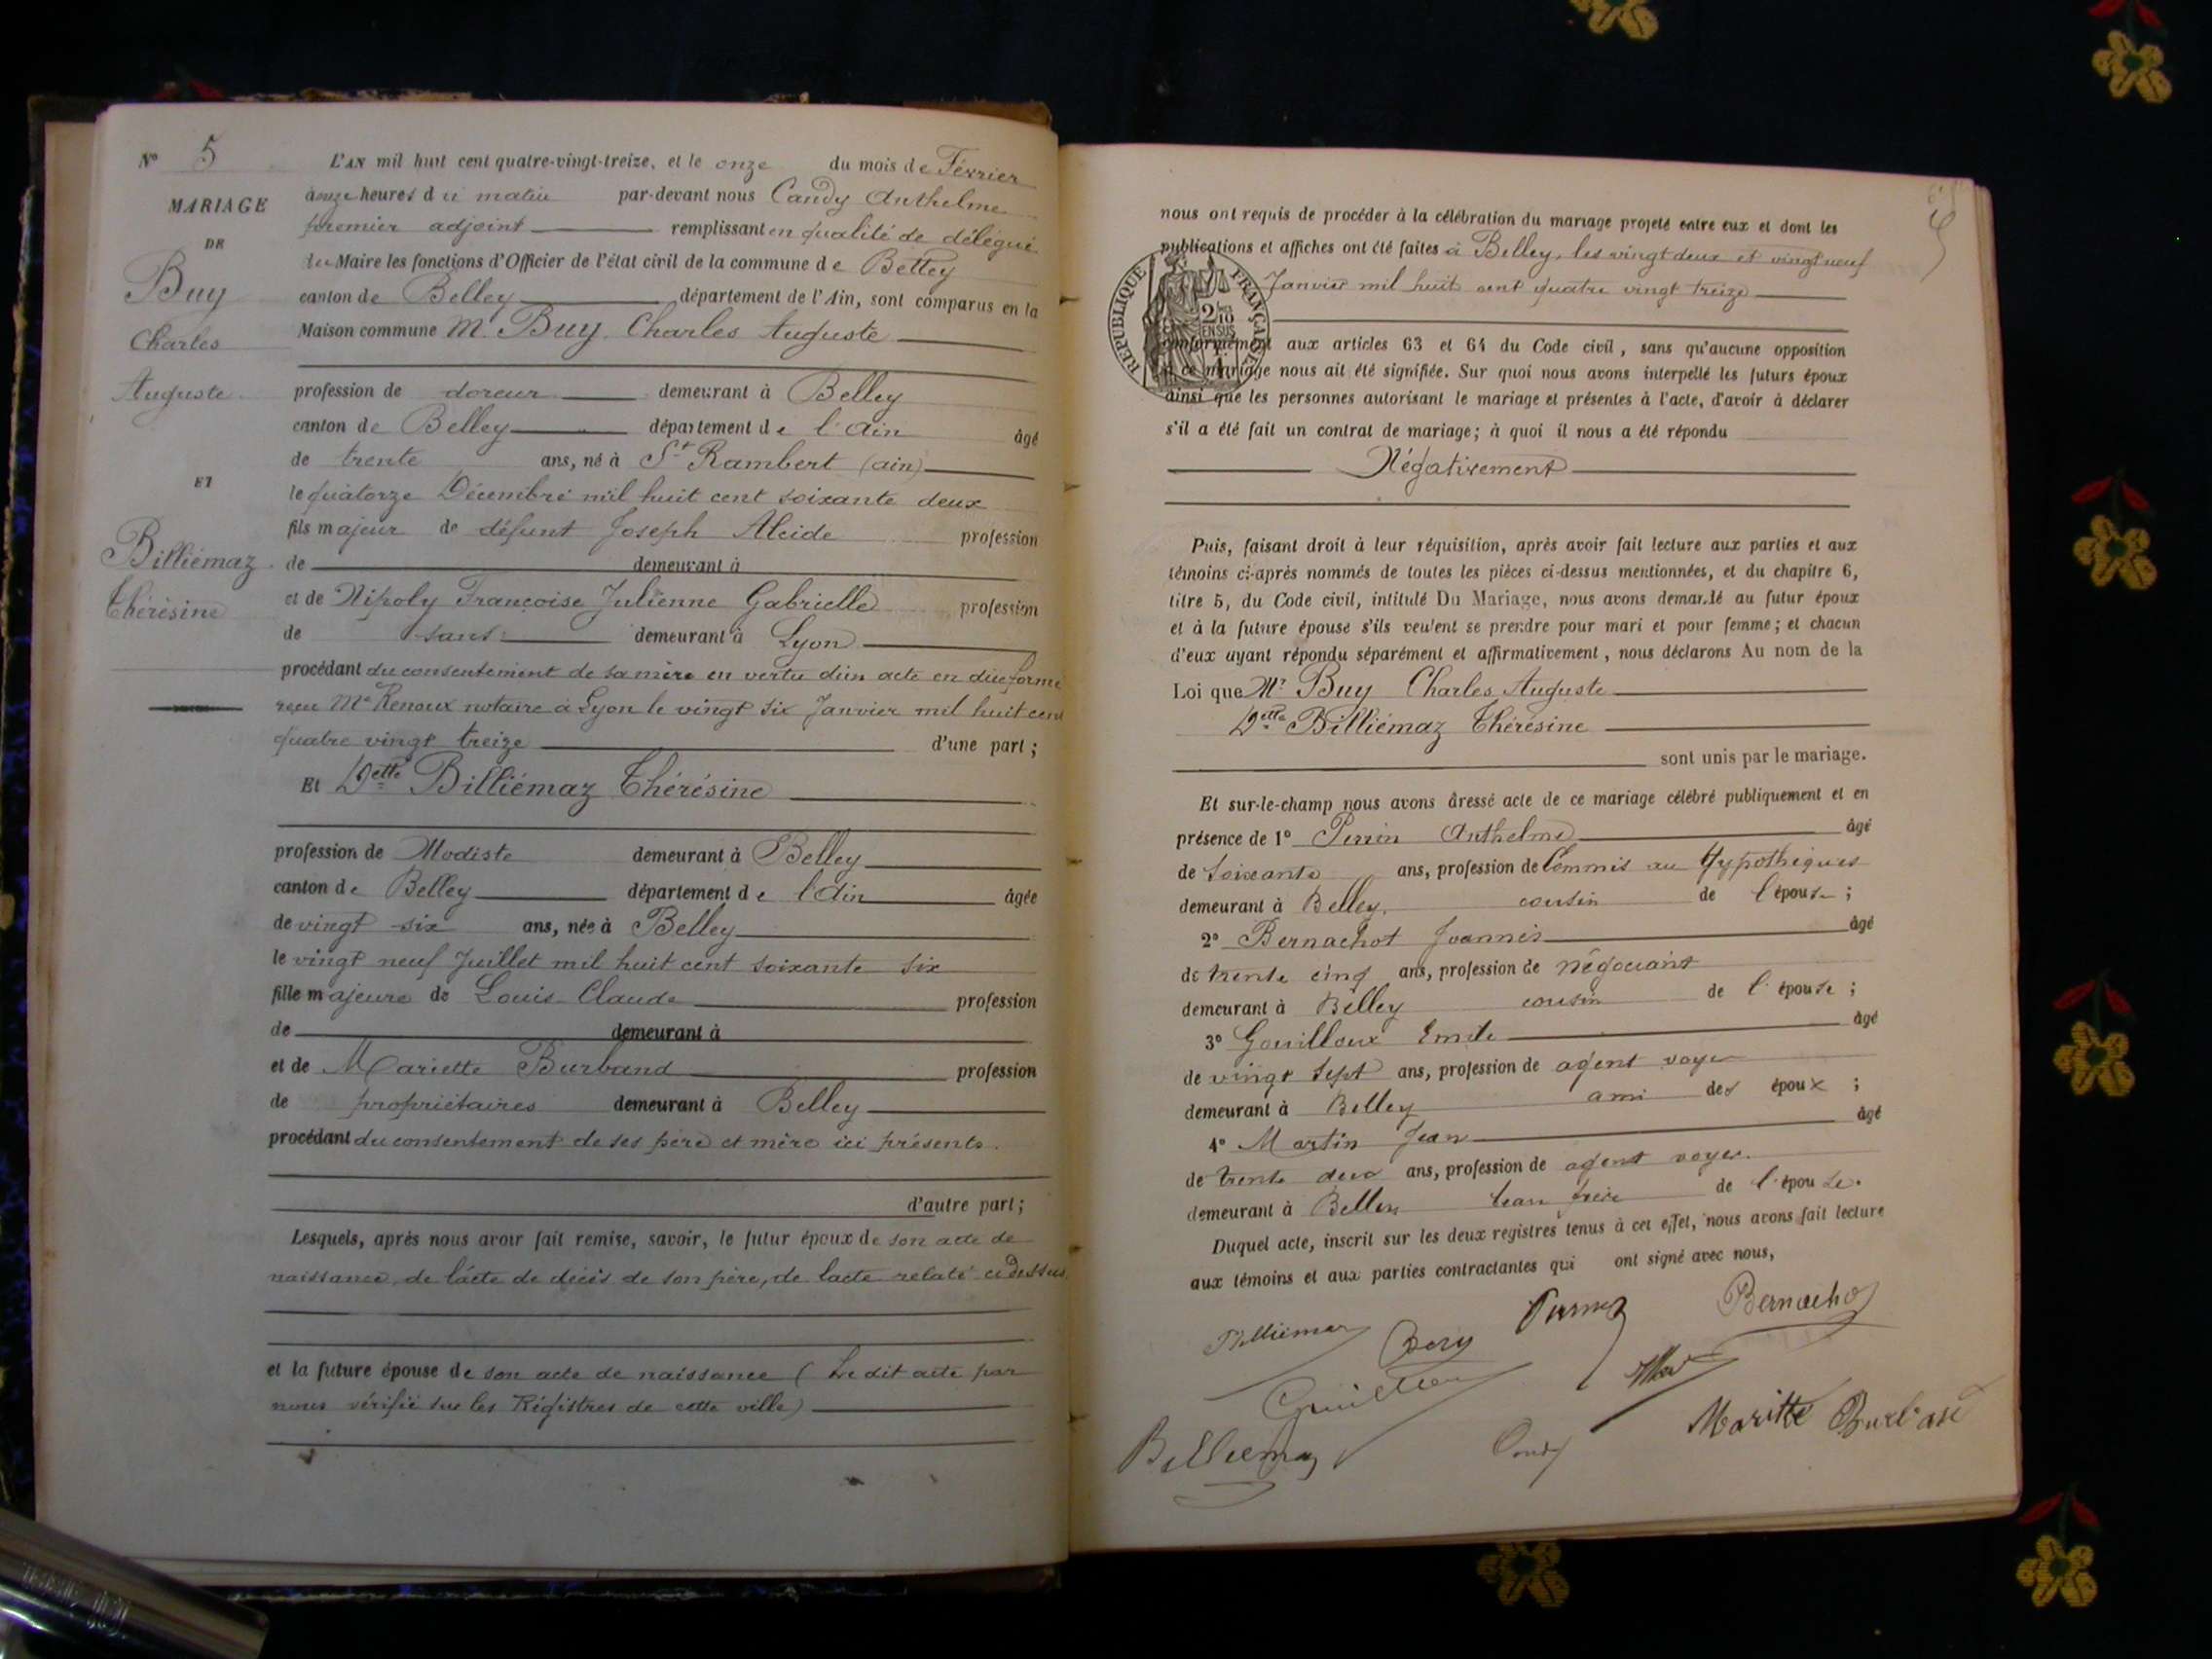 N° 5
MARIAGE
DE
Buy
Charles
Auguste
ET
Billiémaz
Thérésine
L'AN mil huit cent quatre-vingt-treize, et le onze du mois de Février
à onze heures du matin par-devant nous Candy Anthelme
premier adjoint remplissant en qualité de délégué
du Maire les fonctions d'Officier de l'état civil de la commune de Belley
canton de Belley département de l'Ain, sont comparus en la
Maison commune Mr Buy Charles Auguste
profession de doreur demeurant à Belley
canton de Belley département de l'Ain âgé
de trente ans, né à St Rambert (ain)
le quatorze Décembre mil huit cent soixante deux
fils majeur de défunt Joseph Alcide profession
de demeurant à
et de Nipoly Françoise Julienne Gabrielle profession
de sans demeurant à Lyon
procédant du consentement de sa mère en vertu d'un acte en due forme
reçu Me Renoux notaire à Lyon le vingt six Janvier mil huit cent
quatre vingt treize d'une part ;
Et Delle Billiémaz Thérésine
profession de Modiste demeurant à Belley
canton de Belley département de l'Ain âgée
de vingt six ans, née à Belley
le vingt neuf Juillet mil huit cent soixante six
fille majeure de Louis Claude profession
de demeurant à
et de Mariette Burband profession
de propriétaires demeurant à Belley
procédant du consentement de ses père et mère ici présents.
d'autre part ;
Lesquels, après nous avoir fait remise, savoir, le futur époux de son acte de
naissance, de l'acte de décès de son père, de l'acte relaté ci dessus
et la future épouse de son acte de naissance (Le dit acte par
nous vérifié sur les Régistres de cette ville)
5
nous ont requis de procéder à la célébration du mariage projeté entre eux et dont les
publications et affiches ont été faites à Belley, les vingt deux et vingt neuf
Janvier mil huit cent quatre vingt treize
RÉPUBLIQUE FRANÇAISE
2/10 EN SUS
conformément aux articles 63 et 64 du Code civil, sans qu'aucune opposition
à ce mariage nous ait été signifiée. Sur quoi nous avons interpellé les futurs époux
ainsi que les personnes autorisant le mariage et présentes à l'acte, d'avoir à déclarer
s'il a été fait un contrat de mariage ; à quoi il nous a été répondu
Négativement
Puis, faisant droit à leur réquisition, après avoir fait lecture aux parties et aux
témoins ci-après nommés de toutes les pièces ci-dessus mentionnées, et du chapitre 6,
titre 5, du Code civil, intitulé Du Mariage, nous avons demandé au futur époux
et à la future épouse s'ils veulent se prendre pour mari et pour femme ; et chacun
d'eux ayant répondu séparément et affirmativement, nous déclarons Au nom de la
Loi que Mr Buy Charles Auguste
Delle Billiémaz Thérésine
sont unis par le mariage.
Et sur-le-champ nous avons dressé acte de ce mariage célébré publiquement et en
présence de 1° Perrin Anthelme âgé
de soixante ans, profession de Commis au Hypothèques
demeurant à Belley, cousin de l'épouse ;
2° Bernachot Joannès âgé
de trente cinq ans, profession de négociant
demeurant à Belley cousin de l'épouse ;
3° Gouilloux Emile âgé
de vingt sept ans, profession de agent voyer
demeurant à Belley ami des époux ;
4° Martin Jean âgé
de trente deux ans, profession de agent voyer.
demeurant à Belley beau frère de l'épouse.
Duquel acte, inscrit sur les deux registres tenus à cet effet, nous avons fait lecture
aux témoins et aux parties contractantes qui ont signé avec nous,
Billiemaz Buy Perrin Bernachot
Billiemaz Candy Mariette Burband